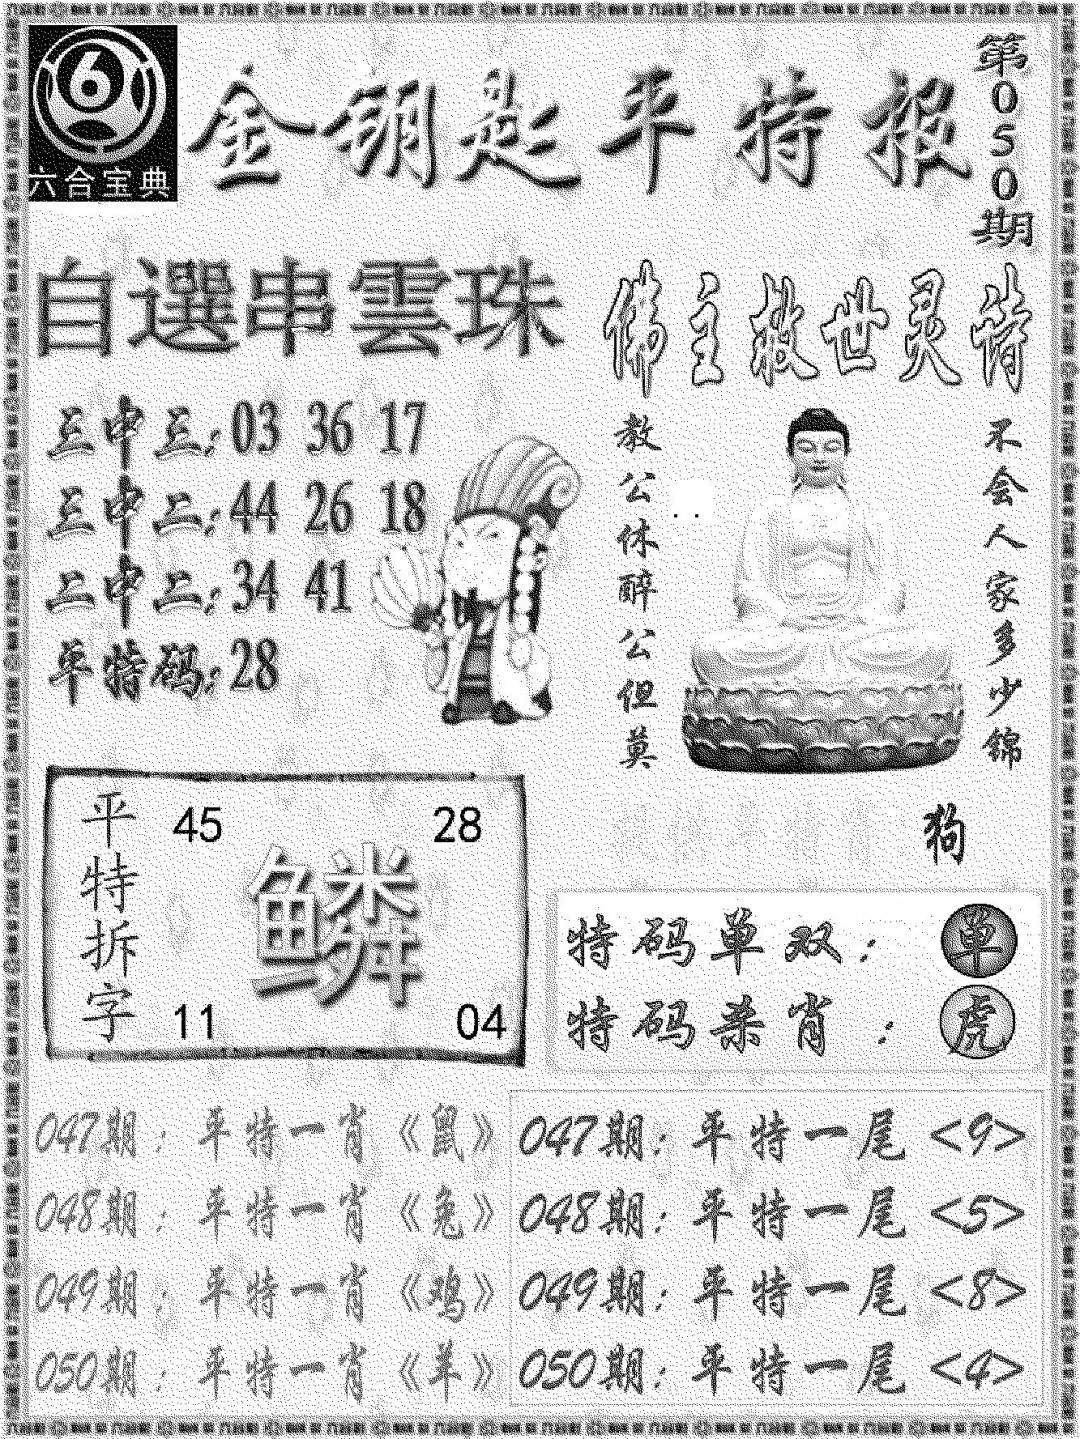 6
六合宝典
金钥匙平特报
第050期
自選串雲珠
三中三:03 36 17
三中二:44 26 18
二中二:34 41
平特码:28
佛主救世灵诗
不会人家多少锦
教公休醉公但莫
狗
平特拆字
45 28
鳞
11 04
特码单双: 单
特码杀肖: 虎
047期:平特一肖《鼠》
048期:平特一肖《兔》
049期:平特一肖《鸡》
050期:平特一肖《羊》
047期:平特一尾<9>
048期:平特一尾<5>
049期:平特一尾<8>
050期:平特一尾<4>